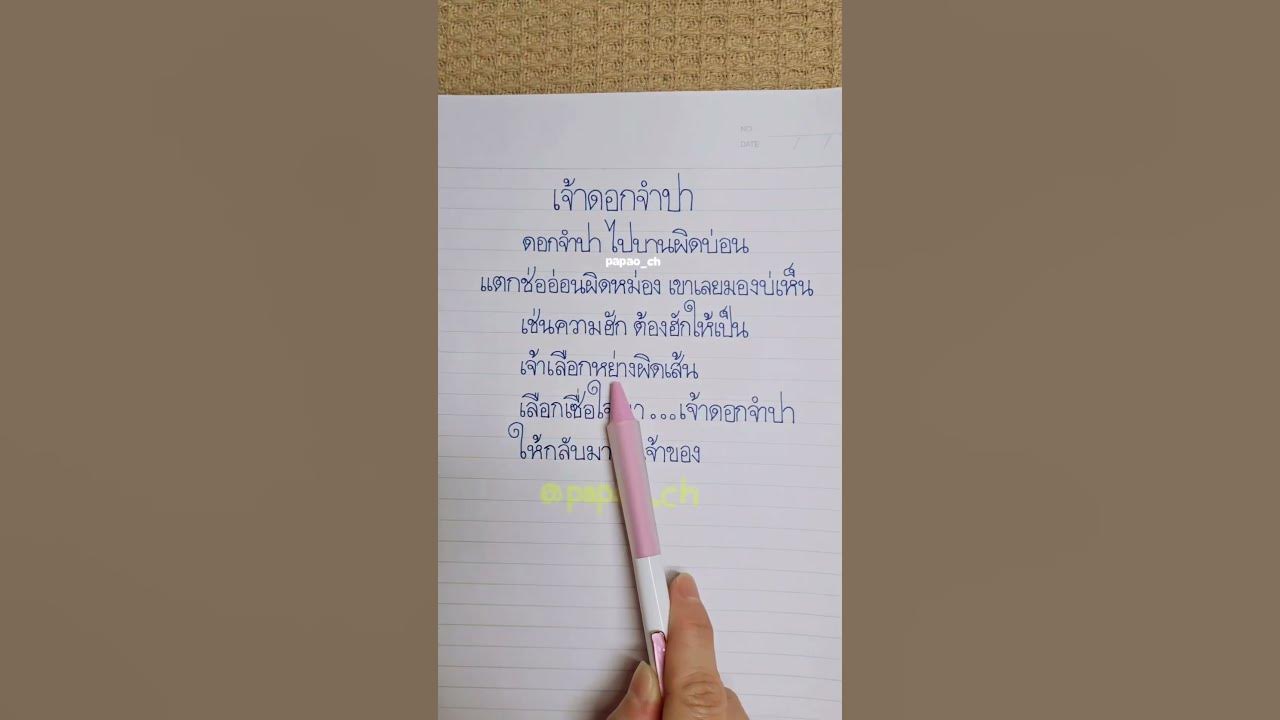 NO.
DATE / /
เจ้าดอกจำปา
ดอกจำปา ไปบานผิดบ่อน
papao_ch
แตกช่ออ่อนผิดหม่อง เขาเลยมองบ่เห็น
เช่นความฮัก ต้องฮักให้เป็น
เจ้าเลือกหย่างผิดเส้น
เลือกเชื่อ ...เจ้าดอกจำปา
ให้กลับมา เจ้าของ
@papao_ch